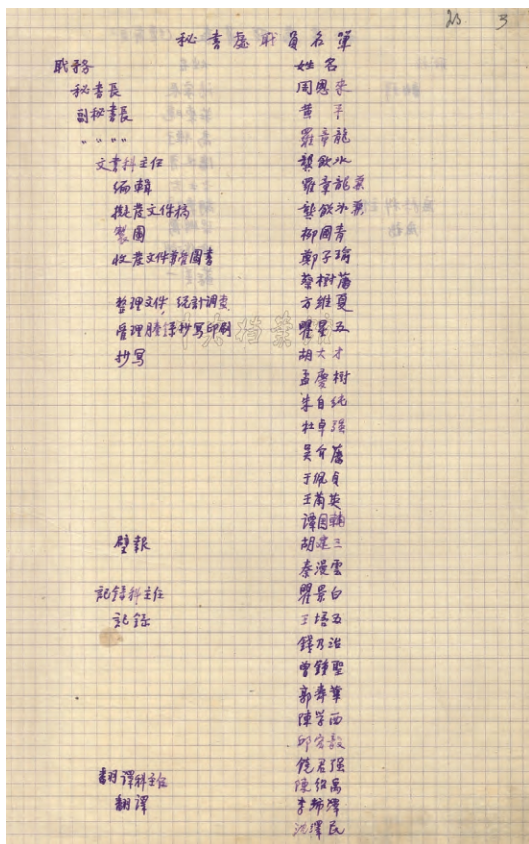 23 3
秘書處職員名單
職務 姓名
秘書長 周恩來
副秘書長 黄平
〃〃〃〃 羅章龍
文書科主任 龔飲冰
编輯 羅章龍兼
擬產文件稿 龔飲冰兼
製圖 柳國青
收產文件兼管圖書 鄭子瑜
蔡樹藩
整理文件,統計調查 方維夏
管理謄録抄写印刷 瞿景五
抄写 胡大才
孟慶樹
朱自純
杜卓强
吴介藩
于佩貞
王蘭英
譚國輔
壁報 胡建三
秦漫雲
記錄科主任 瞿景白
記錄 王培五
鍾乃
曾鍾聖
郭壽華
陳学西
邱宏毅
饒君强
翻譯科主任 陳紹禹
翻譯 李沛澤
沈澤民
中央档案馆